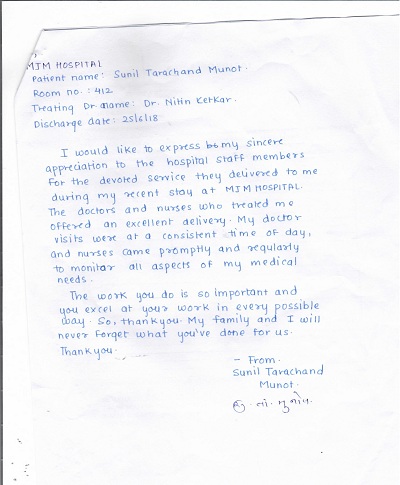 MJM HOSPITAL
Patient name: Sunil Tarachand Munot.
Room no. : 412
Treating Dr. name: Dr. Nitin Kerkar.
Discharge date: 25/6/18
I would like to express my sincere
appreciation to the hospital staff members
for the devoted service they delivered to me
during my recent stay at MJM HOSPITAL.
The doctors and nurses who treated me
offered an excellent delivery. My doctor
visits were at a consistent time of day,
and nurses came promptly and regularly
to monitor all aspects of my medical
needs.
The work you do is so important and
you excel at your work in every possible
way. So, thankyou. My family and I will
never forget what you've done for us.
Thankyou.
- From.
Sunil Tarachand
Munot.